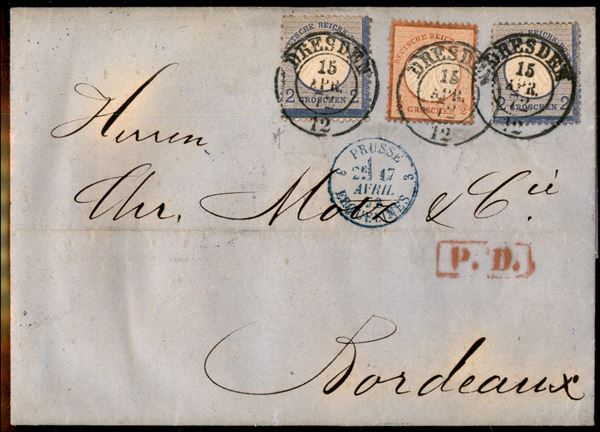 DEUTSCHE REICHS-POST
2 GROSCHEN 2
DRESDEN
15
APR.
12
DEUTSCHE REICHS
DRESDEN
15
APR.
12
REICHS-POST
GROSCHEN 2
DRESDEN
15
APR.
12
Herren
PRUSSE
3 2E 17 3
AVRIL
72
ERQUELINES
Chr. Motz & Cie
P. D.
Bordeaux